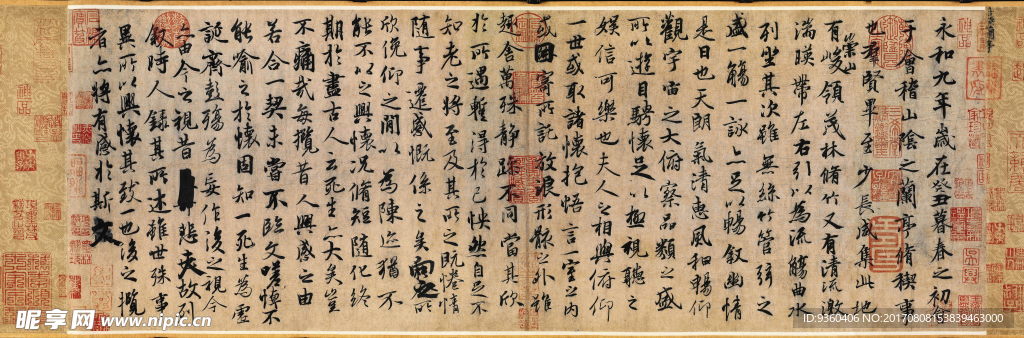 永和九年歲在癸丑暮春之初會
于會稽山陰之蘭亭脩稧事
也羣賢畢至少長咸集此地
有崇山峻領茂林脩竹又有清流激
湍暎帶左右引以為流觴曲水
列坐其次雖無絲竹管弦之
盛一觴一詠亦足以暢敘幽情
是日也天朗氣清惠風和暢仰
觀宇宙之大俯察品類之盛
所以遊目騁懷足以極視聽之
娛信可樂也夫人之相與俯仰
一世或取諸懷抱悟言一室之內
或因寄所託放浪形骸之外雖
趣舍萬殊靜躁不同當其欣
於所遇暫得於己怏然自足不
知老之將至及其所之既惓情
隨事遷感慨係之矣向之所
欣俛仰之閒以為陳迹猶不
能不以之興懷況脩短隨化終
期於盡古人云死生亦大矣豈
不痛哉每攬昔人興感之由
若合一契未嘗不臨文嗟悼不
能喻之於懷固知一死生為虛
誕齊彭殤為妄作後之視今
亦由今之視昔悲夫故列
敘時人錄其所述雖世殊事
異所以興懷其致一也後之攬
者亦將有感於斯文
昵享网 www.nipic.cn
ID:9360406 NO:20170808153839463000